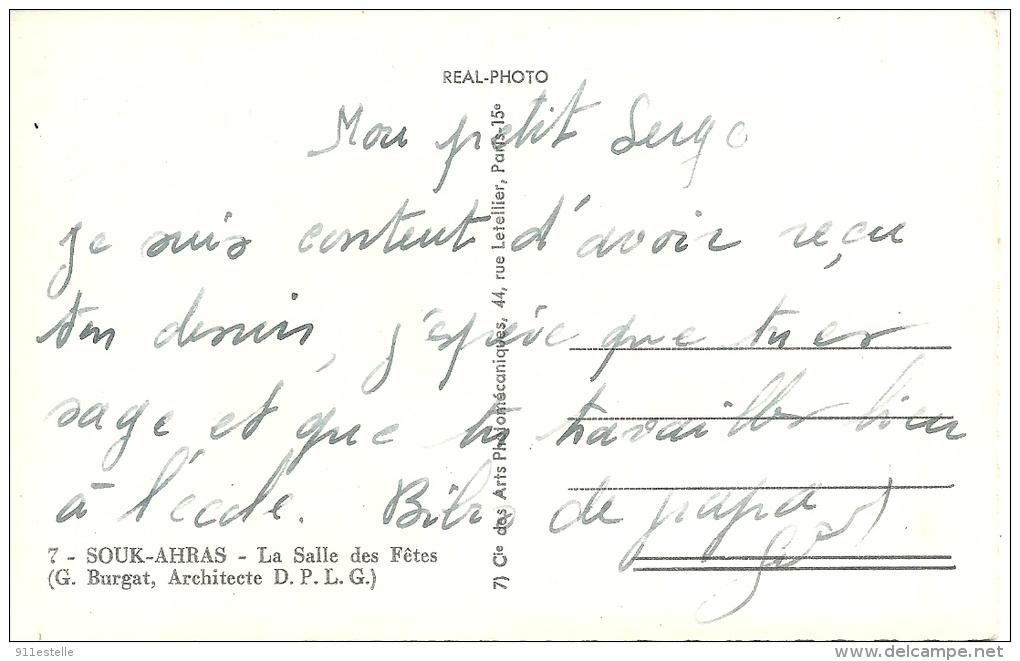 REAL-PHOTO
Mon petit Serge
je suis content d'avoir reçu
ton dessin, j'espère que tu es
sage et que tu travailles bien
à l'école. de papa
7 - SOUK-AHRAS - La Salle des Fêtes
(G. Burgat, Architecte D. P. L. G.)
7) Cie des Arts Photomécaniques, 44, rue Letellier, Paris-15e
911estelle
www.delcampe.net